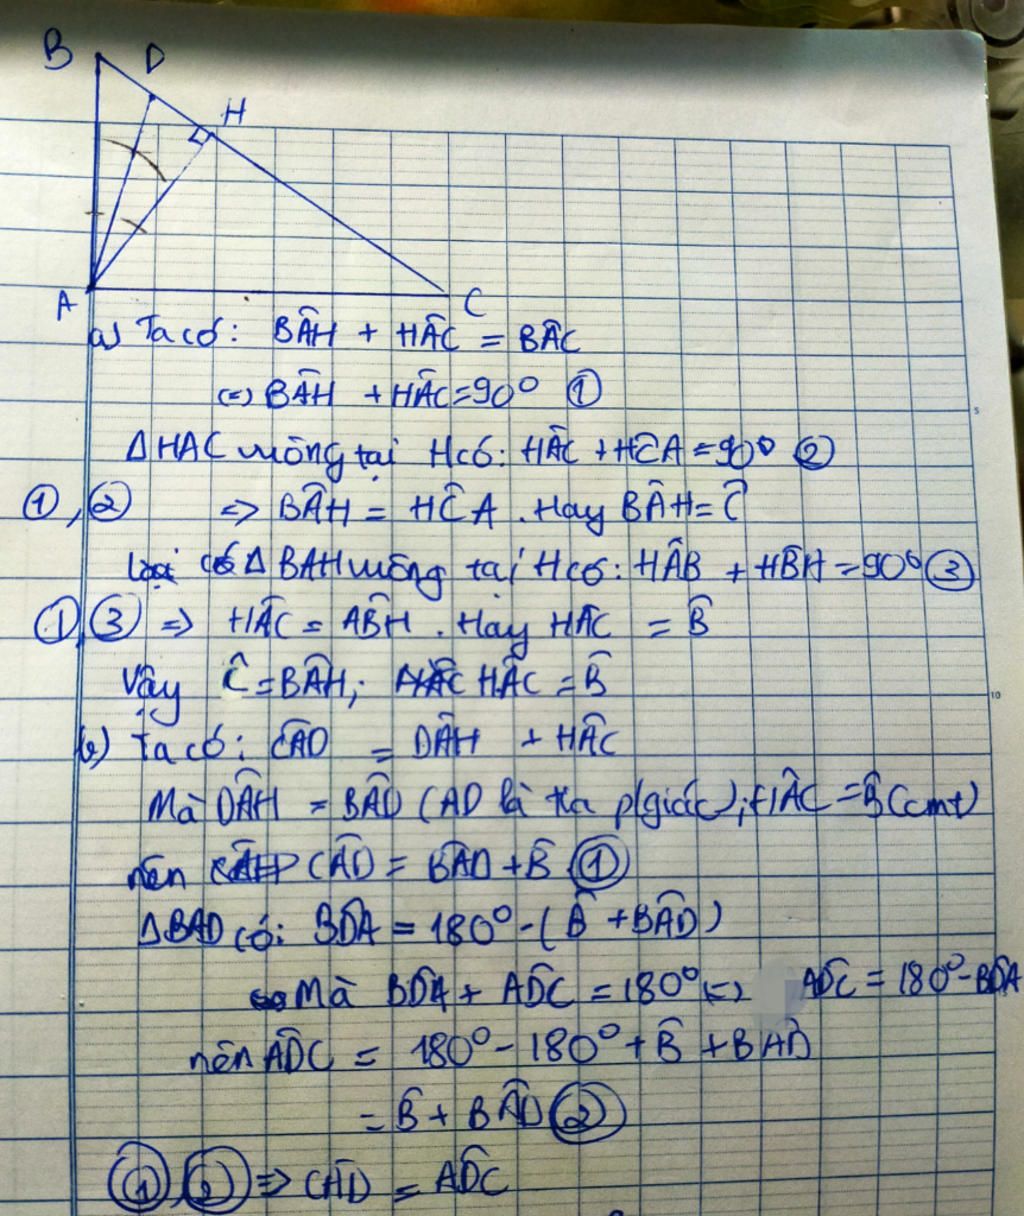 B D
H
A
C
a) Ta có: BÂH + HÂC = BÂC
(=) BÂH + HÂC = 90° ①
ΔHAC vuông tại H có: HÂC + HĈA = 90° ②
①, ② => BÂH = HĈA. Hay BÂH = Ĉ
có Δ BAH vuông tại H có: HÂB + HB̂A = 90° ③
① ③ => HÂC = AB̂H. Hay HÂC = B̂
Vậy Ĉ = BÂH; HÂC = B̂
b) Ta có: CÂD = DÂH + HÂC
Mà DÂH = BÂD (AD là tia p/giác); HÂC = B̂ (cmt)
nên CÂD = BÂD + B̂ ①
ΔBAD có: BD̂A = 180° - (B̂ + BÂD)
Mà BD̂A + AD̂C = 180° (=) AD̂C = 180° - BD̂A
nên AD̂C = 180° - 180° + B̂ + BÂD
= B̂ + BÂD ②
①, ② => CÂD = AD̂C
5
10